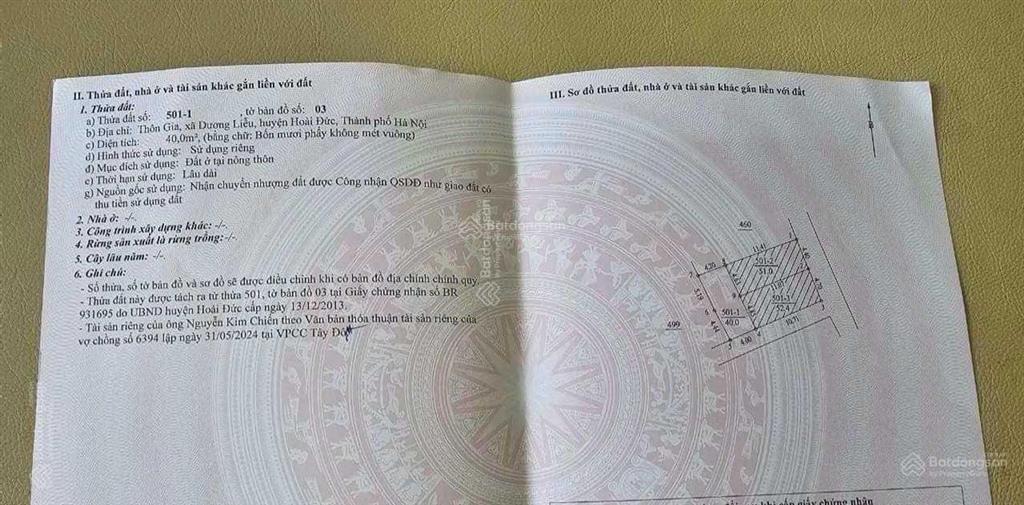 II. Thửa đất, nhà ở và tài sản khác gắn liền với đất
1. Thửa đất:
a) Thửa đất số: 501-1 , tờ bản đồ số: 03
b) Địa chỉ: Thôn Gia, xã Dương Liễu, huyện Hoài Đức, Thành phố Hà Nội
c) Diện tích: 40,0m², (bằng chữ: Bốn mươi phẩy không mét vuông)
d) Hình thức sử dụng: Sử dụng riêng
đ) Mục đích sử dụng: Đất ở tại nông thôn
e) Thời hạn sử dụng: Lâu dài
g) Nguồn gốc sử dụng: Nhận chuyển nhượng đất được Công nhận QSDĐ như giao đất có
thu tiền sử dụng đất
2. Nhà ở: -/-.
3. Công trình xây dựng khác: -/-.
4. Rừng sản xuất là rừng trồng:-/-.
5. Cây lâu năm: -/-.
6. Ghi chú:
- Số thửa, số tờ bản đồ và sơ đồ sẽ được điều chỉnh khi có bản đồ địa chính chính quy.
- Thửa đất này được tách ra từ thửa 501, tờ bản đồ 03 tại Giấy chứng nhận số BR
931695 do UBND huyện Hoài Đức cấp ngày 13/12/2013.
- Tài sản riêng của ông Nguyễn Kim Chiến theo Văn bản thỏa thuận tài sản riêng của
vợ chồng số 6394 lập ngày 31/05/2024 tại VPCC Tây Đô
III. Sơ đồ thửa đất, nhà ở và tài sản khác gắn liền với đất
B
460
11.41
1
501-2
51.0
4.20
7
8
5.19
9
6
501-1
40.0
4.44
501-3
52.4
4.78
10.71
499
5
4.00
4
3
Batdongsan
Batdongsan
by PropertyGuru
khi cấp giấy chứng nhận